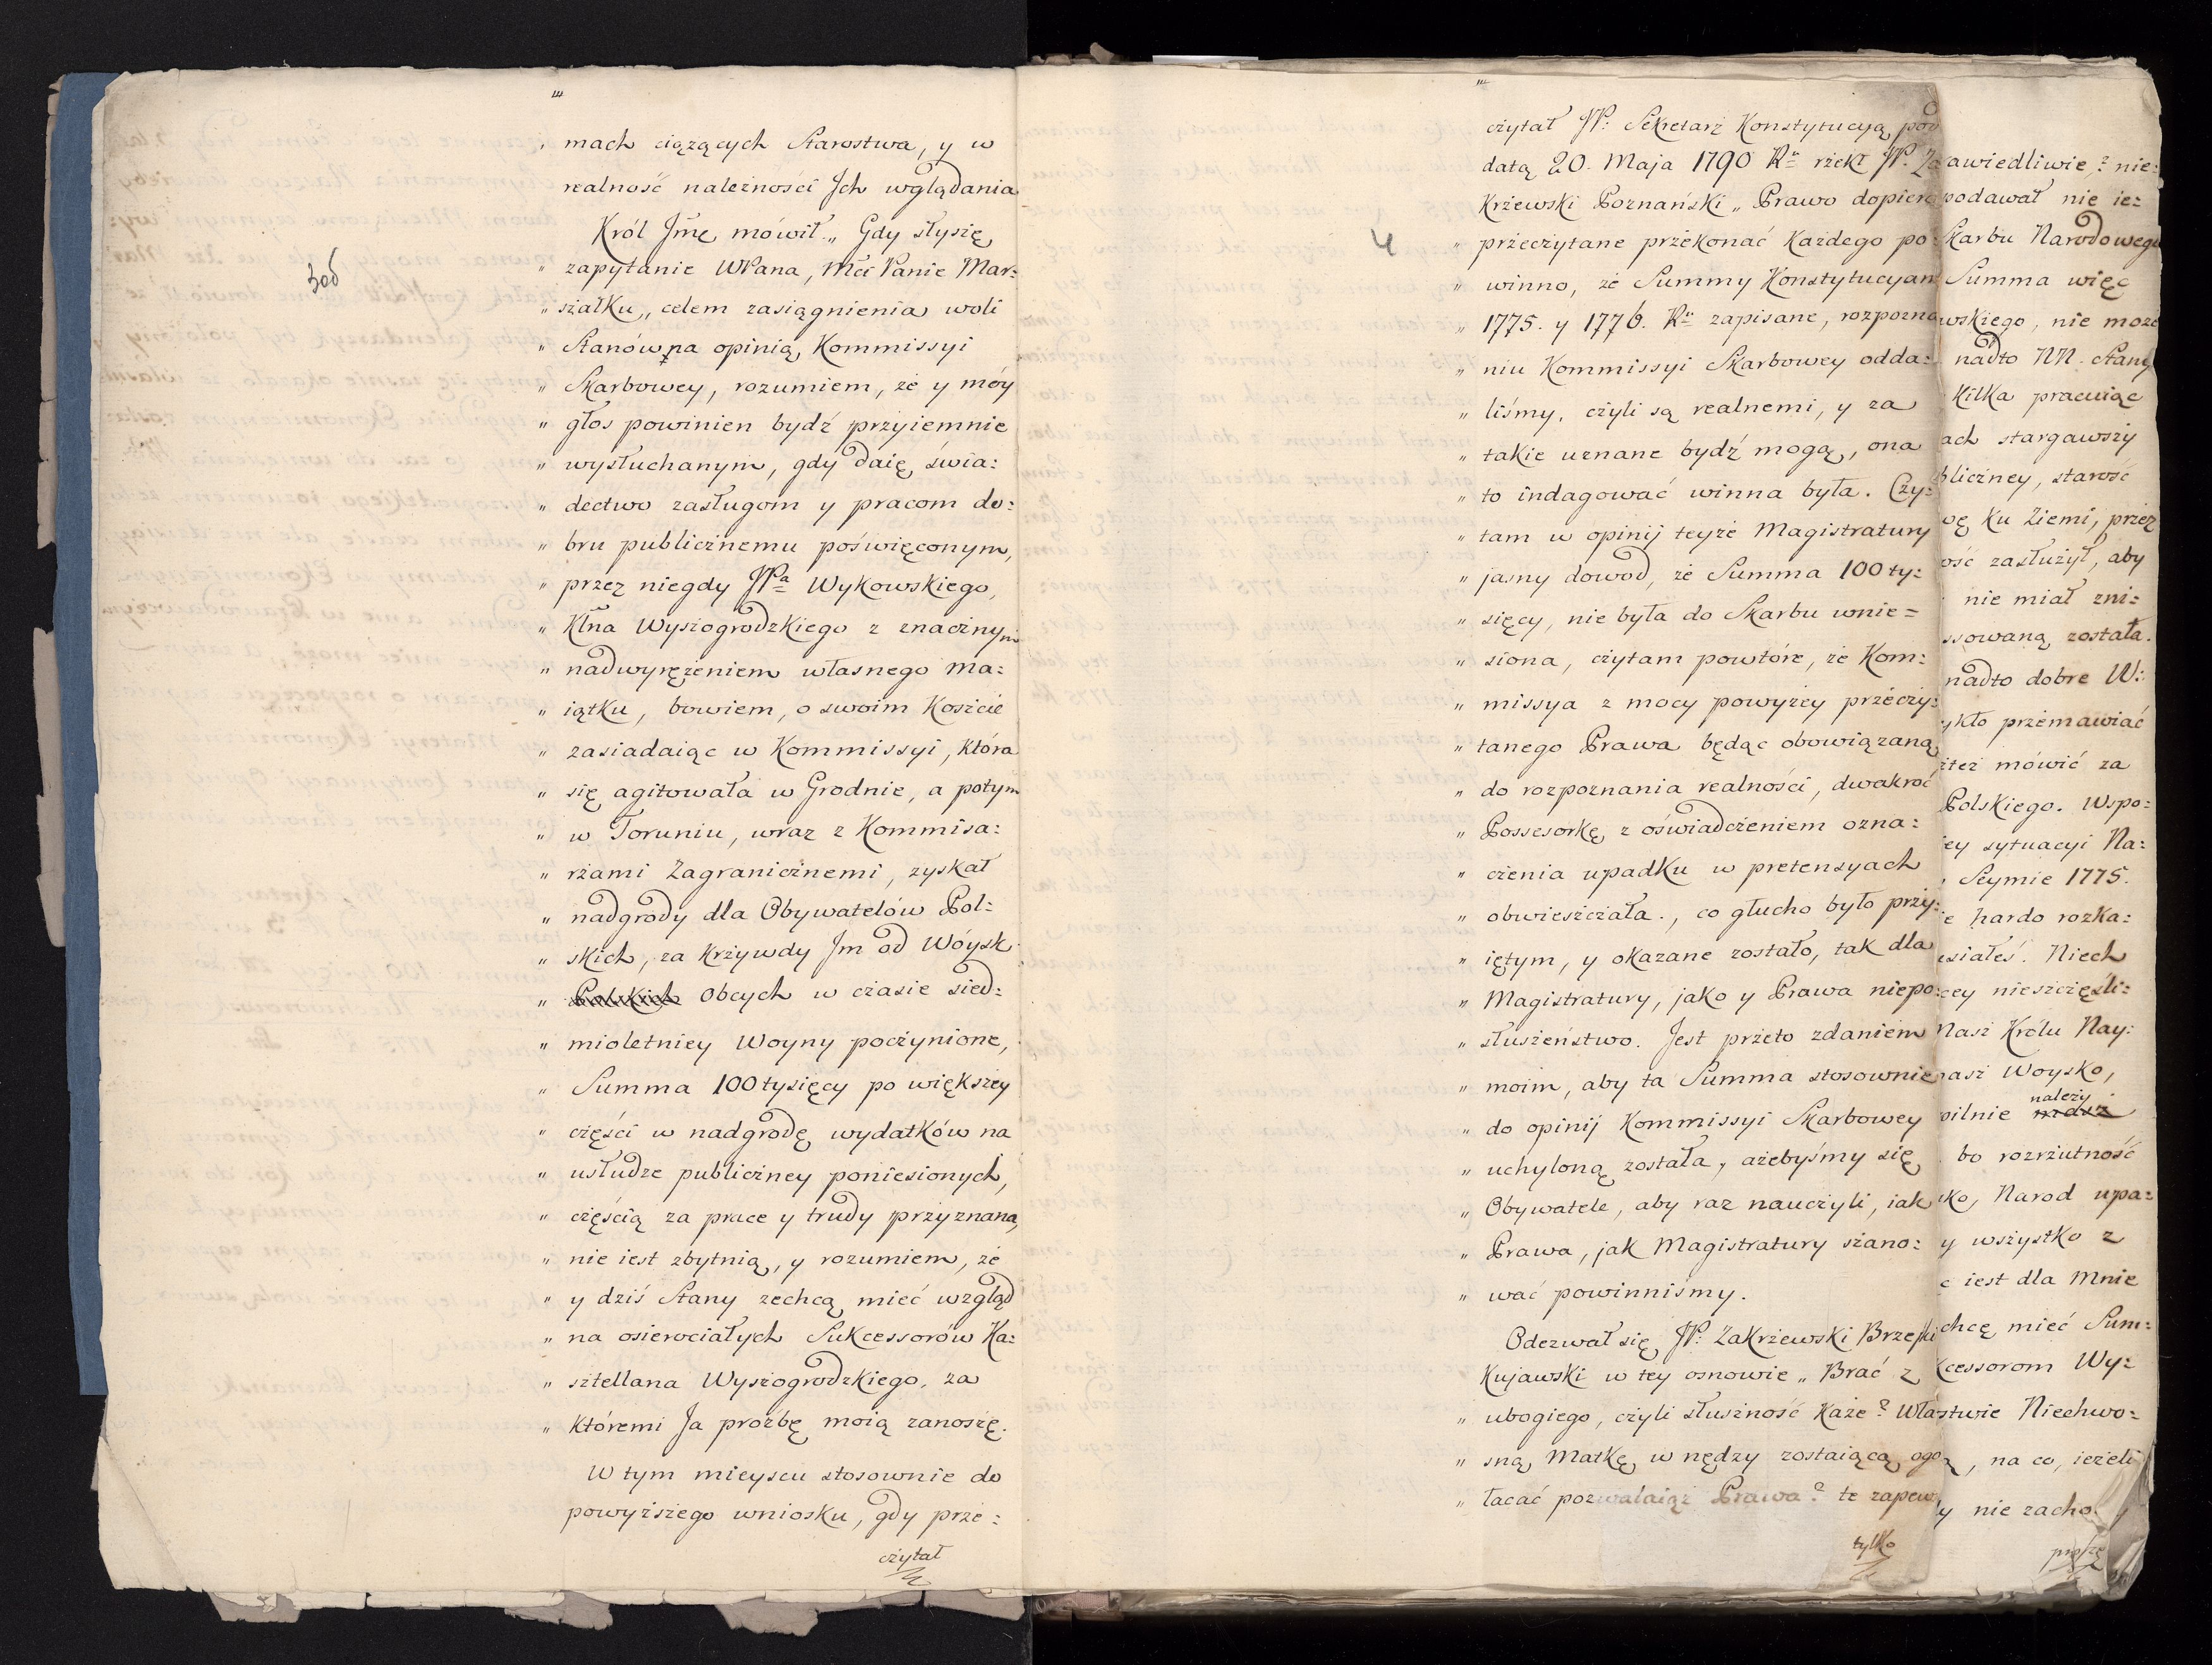 „ mach ciążących Starostwa, y w
realność należności Jch wglądania
Król Jmć mówił „ Gdy słyszę
308
„ zapytanie WPana, Mći Panie Mar:
„ szałku„ celem zasiągnienia woli
„ Stanów na opinią Kommissyi
„ Skarbowey, rozumiem, że y móy
„ głos powinien bydź przyiemnie
„ wysłuchanym, gdy daię świa:
„ dectwo zasługom y pracom do:
„ bru publicznemu poświęconym,
„ przez niegdy JPa Wykowskiego,
„ Kłna Wyszogrodzkiego z znacznym
„ nadwyrężeniem własnego ma:
„ iątku, bowiem, o swoim Koszcie
„ zasiadaiąc w Kommissyi, która
„ się agitowała w Grodnie, a potym
„ w Toruniu, wraz z Kommisa:
„ rzami Zagranicznemi, zyskał
„ nadgrody dla Obywatelów Pol:
„ skich, za Krzywdy Jm od Wóysk
„ Polskich Obcych w czasie sied:
„ mioletniey Woyny poczynione,
„ Summa 100 tysięcy po większey
„ części w nadgrodę wydatków na
„ usłudze publiczney poniesionych,
„ częścią za prace y trudy przyznana,
„ nie iest zbytnią, y rozumiem, że
„ y dziś Stany zechcą mieć wzgląd
„ na osierociałych Sukcessorów Ka:
„ sztellana Wyszogrodzkiego, za
„ Któremi Ja proźbę moią zanoszę.
W tym mieyscu stosownie do
powyższego wniosku, gdy prze:
czytał
czytał JP: Sekretarz Konstytucyą pod
datą 20. Maja 1790 Ru rzekł JP. Za
Krzewski Poznański „ Prawo dopiero
4
„ przeczytane przekonać Każdego po:
„ winno, że Summy Konstytucyam
„ 1775. y 1776. Ru zapisane, rozpozna
„ niu Kommissyi Skarbowey odda:
„ liśmy, czyli są realnemi, y za
„ takie uznane bydź mogą, ona
„ to indagować winna była. Czy:
„ tam w opinij teyże Magistratury
„ jasny dowod, że Summa 100 ty:
„ sięcy, nie była do Skarbu wnie=
„ siona, czytam powtóre, że Kom:
„ missya z mocy powyżey przeczy:
„ tanego Prawa będąc obowiązaną
„ do rozpoznania realności, dwakroć
„ Possesorkę z oświadczeniem ozna:
„ czenia upadku w pretensyach
„ obwieszczała., co głucho było przy:
„ iętym, y okazane zostało, tak dla
„ Magistratury, jako y Prawa niepo:
„ słuszeństwo. Jest przeto zdaniem
„ moim, aby ta Summa stosownie
„ do opinij Kommissyi Skarbowey
„ uchyloną została, ażebyśmy się
„ Obywatele, aby raz nauczyli, iak
„ Prawa, jak Magistratury szano:
„ wać powinniśmy.
Odezwał się JP: Zakrzewski Brzeski
Kujawski w tey osnowie „ Brać z
„ ubogiego, czyli słuszność Każe? Wła
„ sną Matkę w nędzy zostaiącą ogo
„ łacać pozwalaiąż Prawa? te zapew
tylko
awiedliwie? nie:
podawał nie ie:
Skarbu Narodowego
Summa więc
wskiego, nie może
nadto NN. Stany
Kilka pracuiąc
ach stargawszy
bliczney, starość
wę Ku Ziemi, przez
ość zasłużył, aby
nie miał zni:
ssowaną została.
nadto dobre W:
ykło przemawiać
też mówić za
Polskiego. Wspo:
ey sytuacyi Na:
Seymie 1775.
ie hardo rozka:
siałeś. Niech
cey nieszczęśli:
Nasz Królu Nay:
nasz Woysko,
należy
pilnie
bo rozrzutność
ko, Narod upa:
y wszystko z
c iest dla Mnie
chcę mieć Sum:
kcessorom Wy:
stwie Niechwo:
ą, na co, ieżeli
y nie zacho
proszę